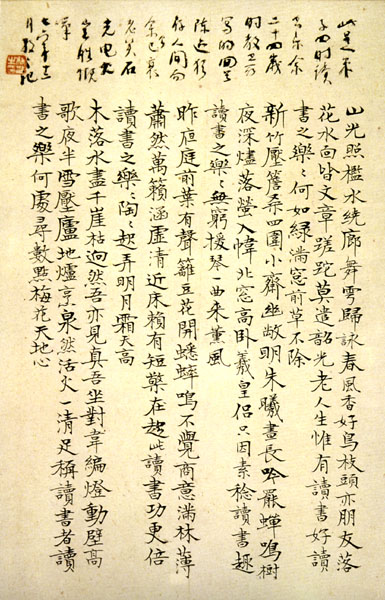 此是朱
子四时讀
書樂余
二十四歲
时教
写的
陈迹犹
存人间而
余已衰
老矣石
火电光
豈胜慨
山光照檻水繞廊舞雩歸詠春風香好鳥枝頭亦朋友落
花水向皆文章蹉跎莫遣韶光老人生惟有讀書好讀
書之樂〻何如綠滿窗前草不除
新竹壓簷桑四圍小齋幽敞明朱曦晝長吟罷蟬鳴樹
夜深燼落螢入幃北窗高卧羲皇侶只因素稔讀書趣
讀書之樂〻無窮援琴一曲来薰風
昨夜庭前葉有聲籬豆花開蟋蟀鳴不覺商意滿林薄
蕭然萬籟涵虛清近床賴有短檠在趁此讀書功更倍
讀書之樂〻陶〻起弄明月霜天高
木落水盡千崖枯迥然吾亦見真吾坐對韋編燈動壁高
歌夜半雪壓廬地爐烹泉然活火一清足稱讀書者讀
書之樂何處尋數點梅花天地心